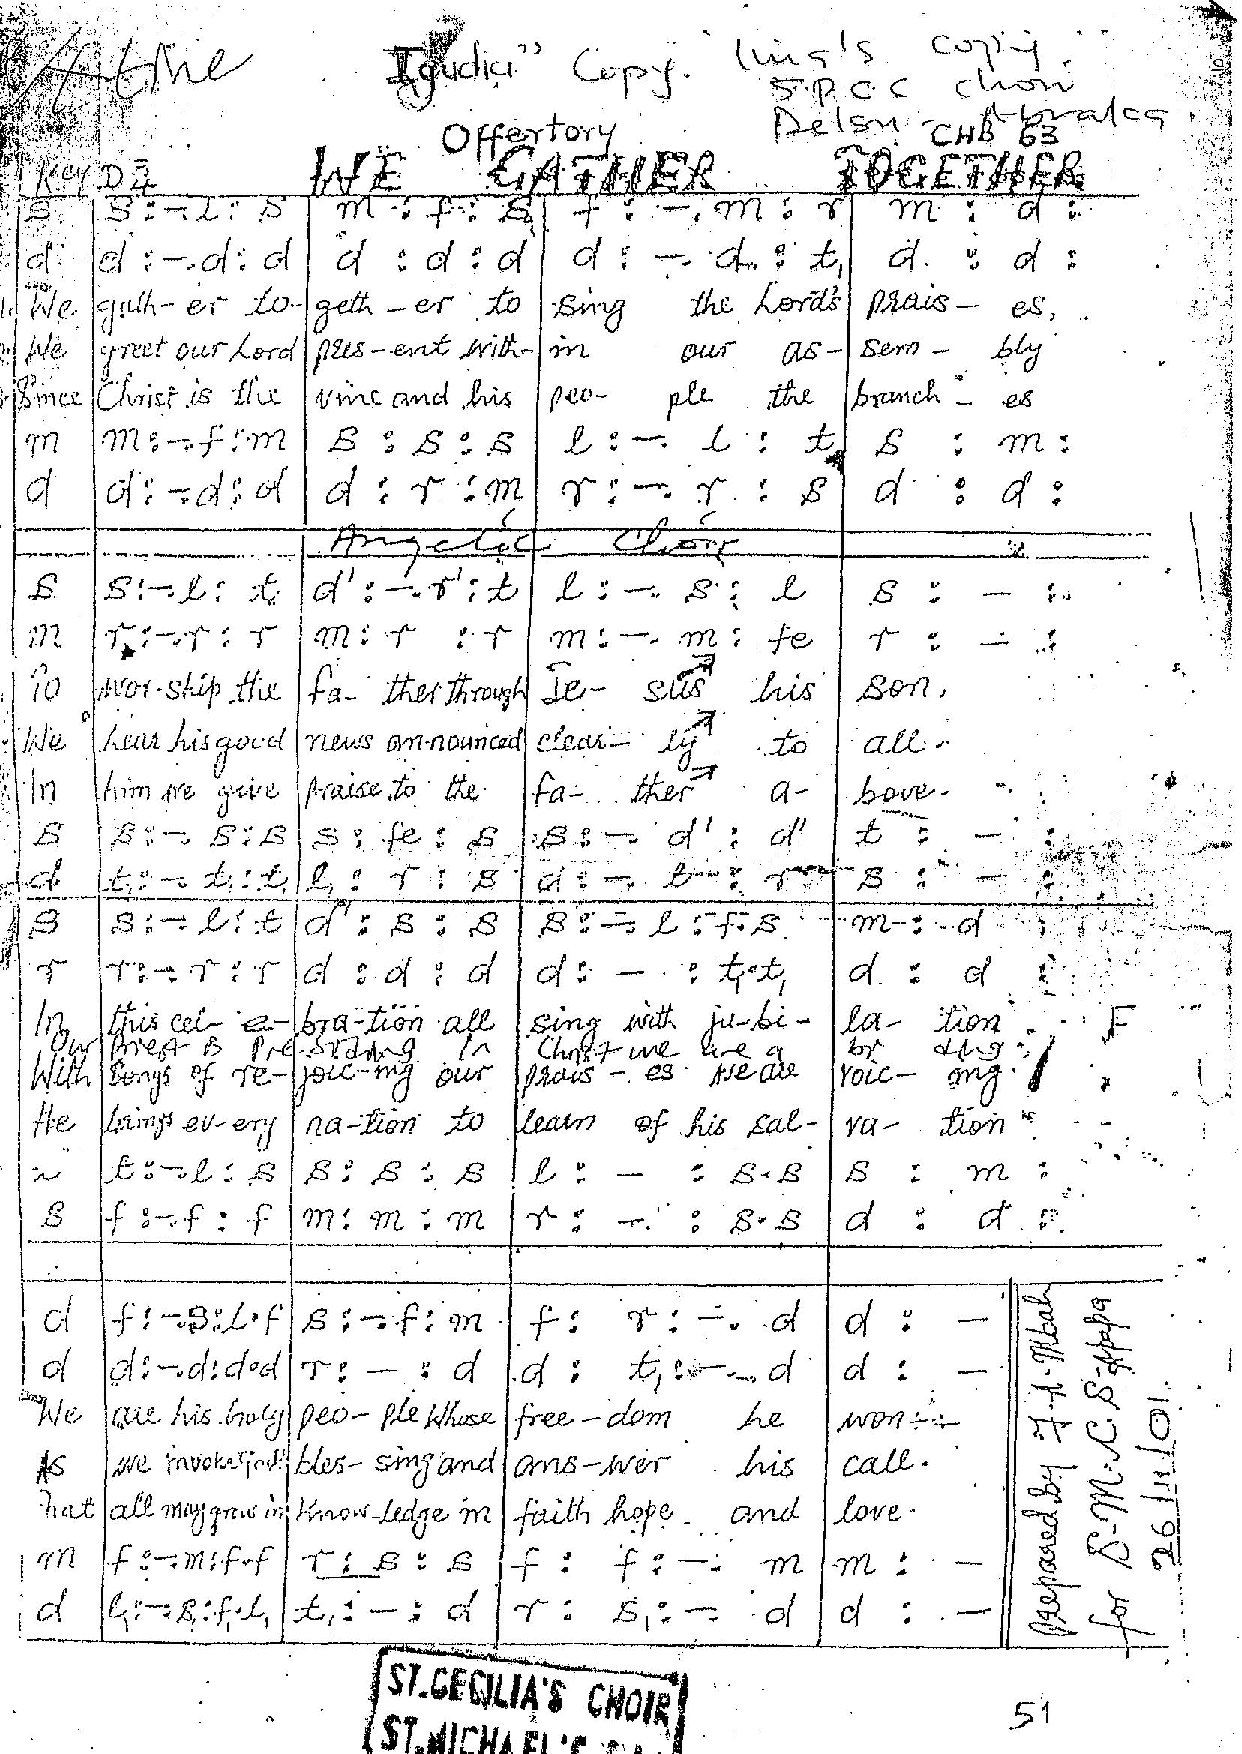 "Igudici" Copy. Ling's copy
S.P.C.C choir
Offertory CHB 63
Key D 3/4 WE GATHER TOGETHER
s s:-.l:s | m:f:s | f:-.m:r | m:d:
d d:-.d:d | d:d:d | d:-.d:t₁ | d:d:
We gath-er to- geth-er to sing the Lord's prais-es,
We greet our Lord pres-ent with- in our as- sem-bly
Since Christ is the vine and his peo-ple the branch-es
m m:-.f:m | s:s:s | l:-.l:t | s:m:
d d:-.d:d | d:r:m | r:-.r:s | d:d:
Angelic Choir
s s:-.l:t | d':-.r':t | l:-.s:l | s:-:
m r:-.r:r | m:r:r | m:-.m:fe | r:-:
To wor-ship the fa-ther through Je-sus his son,
We hear his good news an-nounced clear-ly to all.
In him we give praise to the fa-ther a- bove.
s s:-.s:s | s:fe:s | s:-.d':d' | t:-:
d t₁:-.t₁:t₁ | l₁:r:s | d:-.t:r | s:-:
s s:-.l:t | d':s:s | s:-.l:f.s | m:d:
r r:-.r:r | d:d:d | d:-:t₁.t₁ | d:d:
In this cel-e- bra-tion all sing with ju-bi- la-tion
Our Priest is Pre-siding in Christ we are a
With songs of re- joic-ing our prais-es we are voic-ing.
He brings ev-ery na-tion to learn of his sal- va-tion
t:-.l:s | s:s:s | l:-:s.s | s:m:
s f:-.f:f | m:m:m | r:-.:s.s | d:d:
d f:-.s:l.f | s:-.f:m | f:r:-.d | d:-
d d:-.d:d.d | r:-:d | d:t₁:-.d | d:-
We are his holy peo-ple whose free-dom he won
As we invoke bles-sing and ans-wer his call.
that all may grow in know-ledge in faith hope and love.
m f:-.m:f.f | r:s:s | f:f:-.m | m:-
d l₁:-.s₁:f₁.l₁ | t₁:-:d | r:s₁:-.d | d:-
Prepared by F.A. Mbah
for S.M.C S
26/11/01.
ST. CECILIA'S CHOIR
ST. MICHAEL'S
51